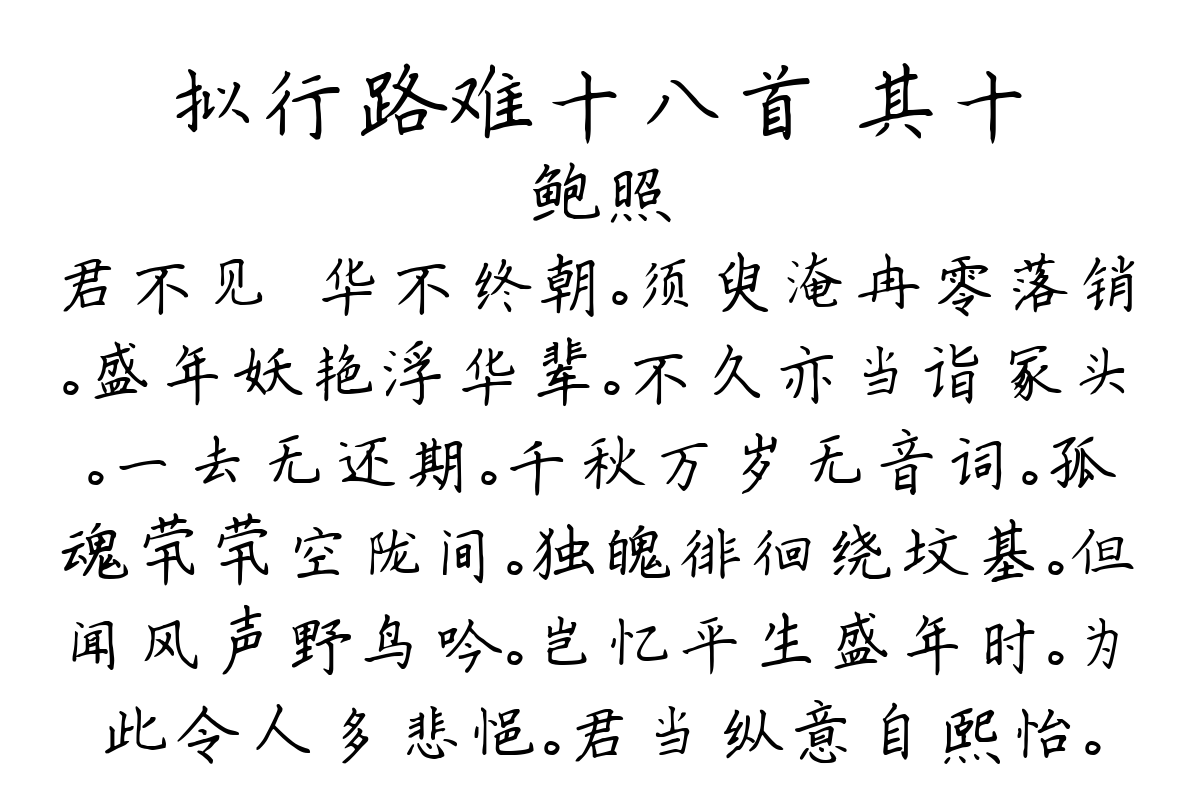 拟行路难十八首 其十
鲍照
君不见 华不终朝。须臾淹冉零落销
。盛年妖艳浮华辈。不久亦当诣冢头
。一去无还期。千秋万岁无音词。孤
魂茕茕空陇间。独魄徘徊绕坟基。但
闻风声野鸟吟。岂忆平生盛年时。为
此令人多悲悒。君当纵意自熙怡。